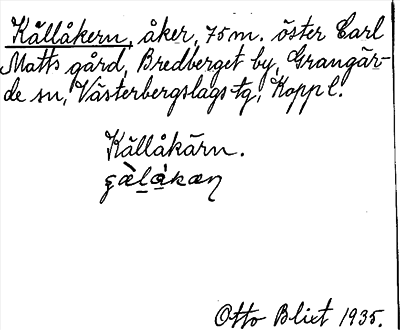 Källåkern, åker, 75 m. öster Carl
Matts gård, Bredberget by, Grangär-
de sn, Västerbergslags tg, Koppl.
Källåkärn.
Otto Blixt 1935.